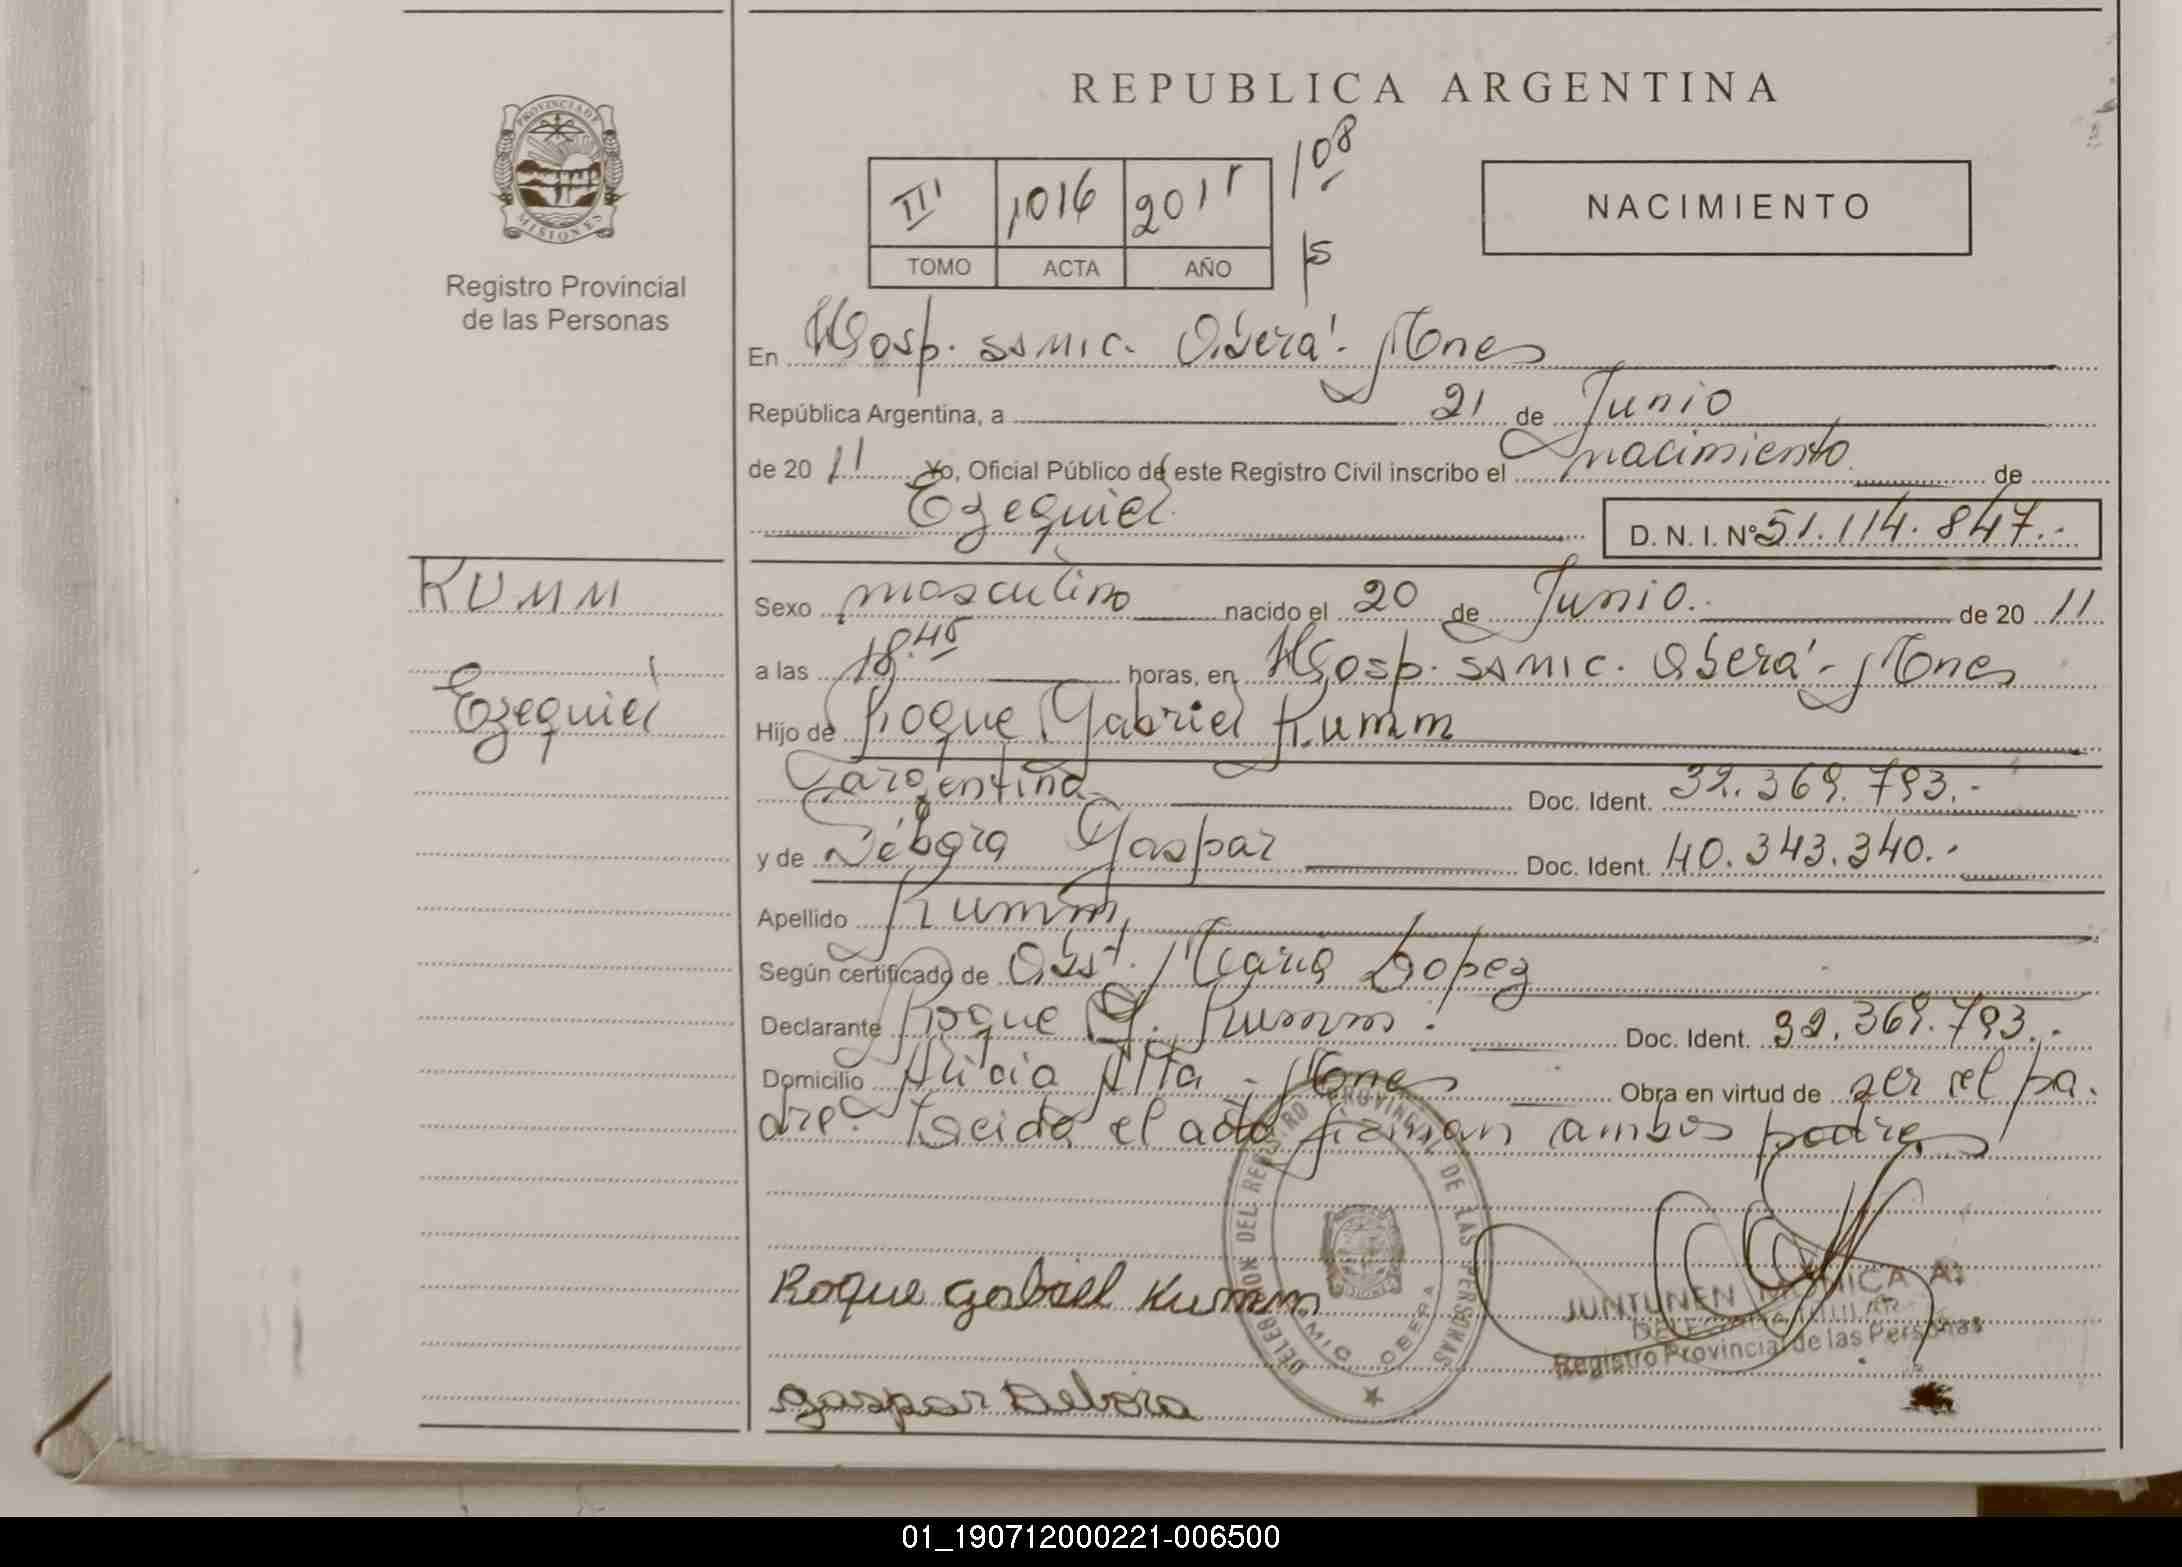 REPUBLICA ARGENTINA
PROVINCIA DE MISIONES
Registro Provincial
de las Personas
III 1016 2011 108
TOMO ACTA AÑO
NACIMIENTO
En Hosp. SSMIC. Oberá - Mnes
República Argentina, a 21 de Junio
de 20 11 Yo, Oficial Público de este Registro Civil inscribo el nacimiento de
Ezequiel D. N. I. Nº 51.114.847.-
KUMM
Ezequiel
Sexo masculino nacido el 20 de Junio. de 20 11
a las 18.45 horas, en Hosp. SSMIC. Oberá - Mnes
Hijo de Roque Gabriel Kumm
argentina Doc. Ident. 32.369.793.-
y de Débora Gaspar Doc. Ident. 40.343.340.-
Apellido Kumm
Según certificado de Obst. Maria Lopez
Declarante Roque G. Kumm. Doc. Ident. 32.369.793.-
Domicilio Alicia Alta - Mnes Obra en virtud de ser el pa-
dre. Leida el acta firman ambos padres
DELEGACION DEL REGISTRO PROVINCIAL DE LAS PERSONAS
OBERA
Roque Gabriel Kumm
JUNTUNEN MONICA A.
DELEGADA TITULAR
Registro Provincial de las Personas
Gaspar Debora
01_190712000221-006500